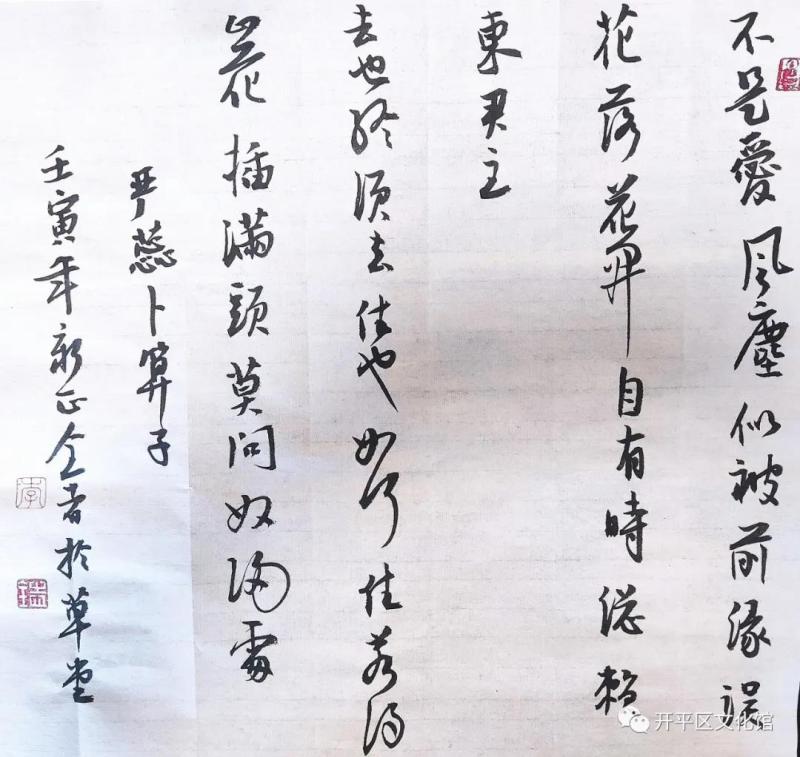 不是愛風塵似被前緣誤
花落花開自有時總賴
東君主
去也終須去住也如何住若得
山花插滿頭莫問奴歸處
严蕊卜算子
壬寅年新正仝者於草堂
李
開平区文化馆